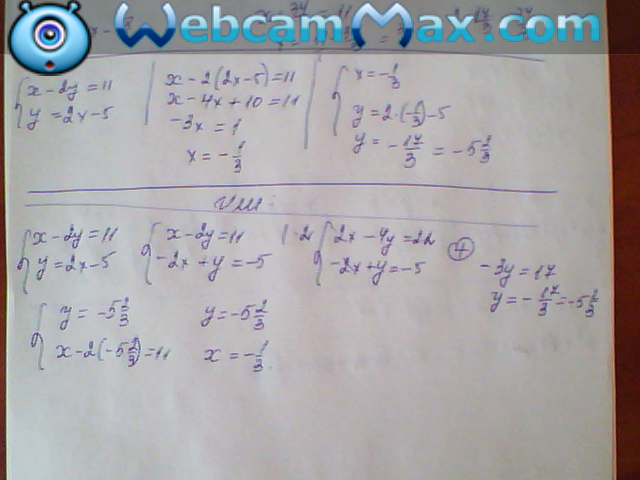 WebcamMax.com
{ x - 2y = 11
y = 2x - 5
x - 2(2x - 5) = 11
x - 4x + 10 = 11
-3x = 1
x = -1/3
{ x = -1/3
y = 2·(-1/3) - 5
y = -17/3 = -5 2/3
или
{ x - 2y = 11
y = 2x - 5
{ x - 2y = 11 | ·2
-2x + y = -5
{ 2x - 4y = 22
-2x + y = -5
(+)
-3y = 17
y = -17/3 = -5 2/3
{ y = -5 2/3
x - 2(-5 2/3) = 11
y = -5 2/3
x = -1/3.